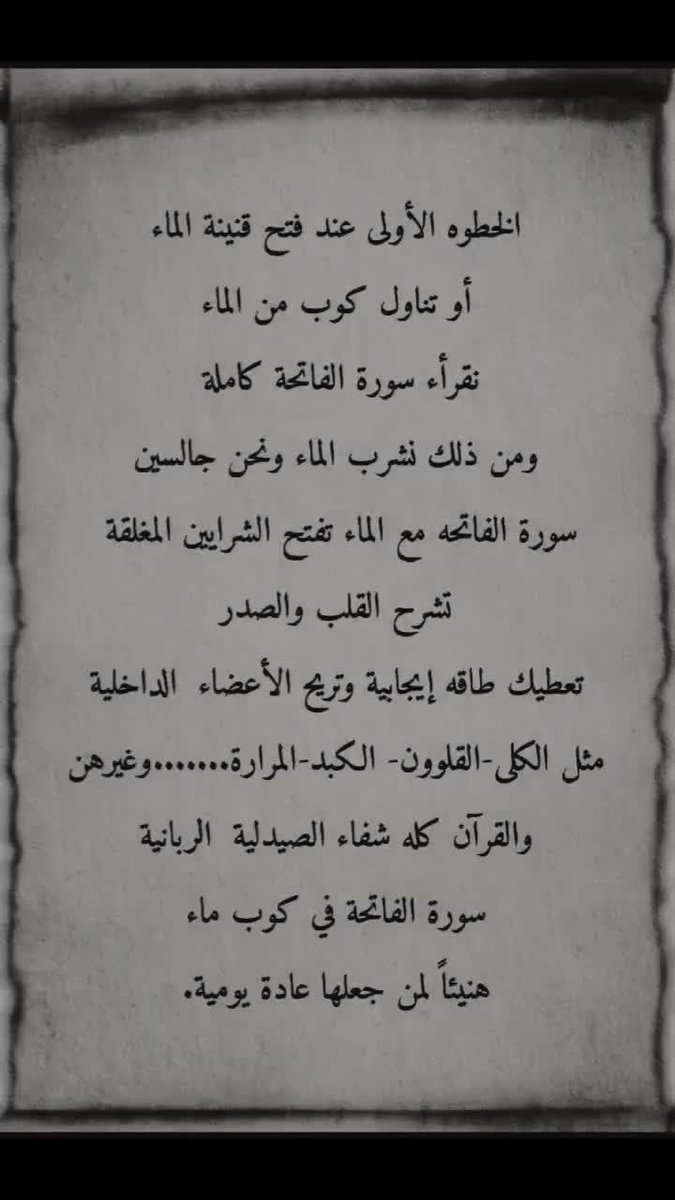 الخطوه الأولى عند فتح قنينة الماء
أو تناول كوب من الماء
نقرأء سورة الفاتحة كاملة
ومن ذلك نشرب الماء ونحن جالسين
سورة الفاتحه مع الماء تفتح الشرايين المغلقة
تشرح القلب والصدر
تعطيك طاقه إيجابية وتريح الأعضاء الداخلية
مثل الكلى-القلوون- الكبد-المرارة.......وغيرهن
والقرآن كله شفاء الصيدلية الربانية
سورة الفاتحة في كوب ماء
هنيئاً لمن جعلها عادة يومية.